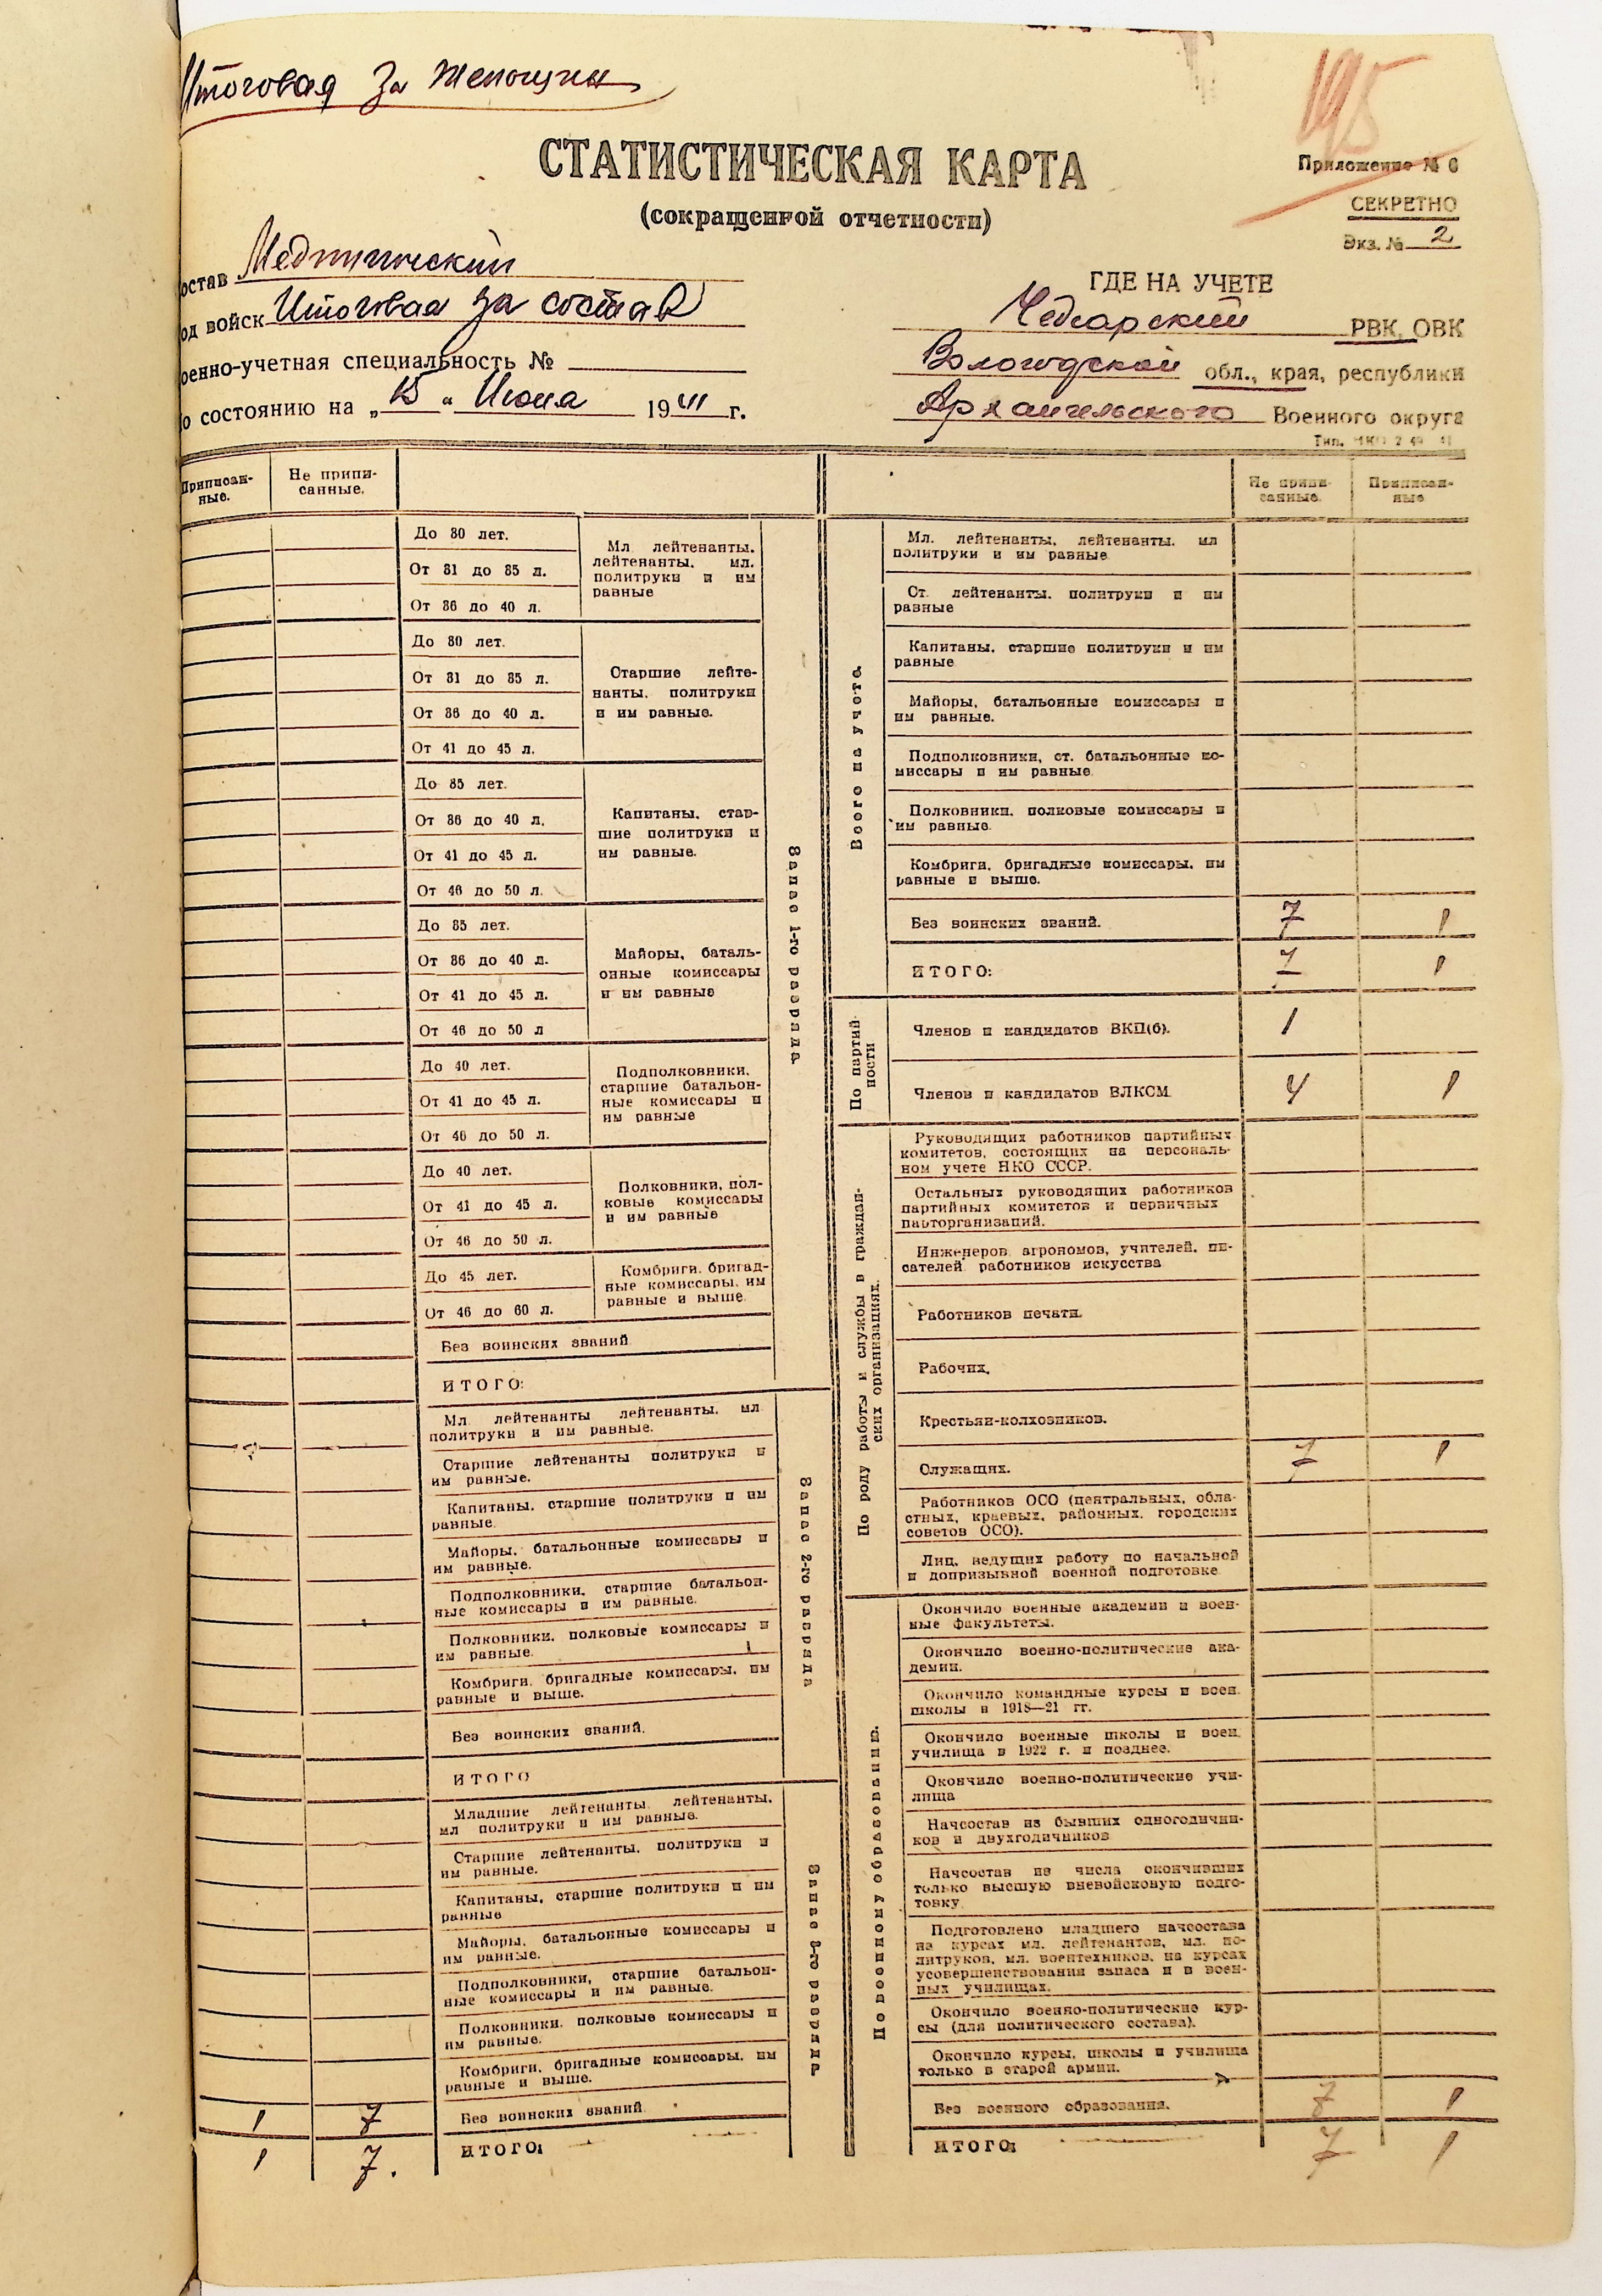 Итоговая за женщин
195
СТАТИСТИЧЕСКАЯ КАРТА
(сокращенной отчетности)
Приложение № 6
СЕКРЕТНО
Экз. № 2
остав Медицинский
од войск Итоговая за состав
оенно-учетная специальность №
о состоянию на „15“ Июня 1941 г.
ГДЕ НА УЧЕТЕ
Чебсарский РВК, ОВК
Вологодской обл., края, республики
Архангельского Военного округа
Приписан-
ные.
Не припи-
санные.
До 30 лет.
От 31 до 35 л.
От 36 до 40 л.
Мл. лейтенанты,
лейтенанты, мл.
политруки и им
равные
До 30 лет.
От 31 до 35 л.
От 36 до 40 л.
От 41 до 45 л.
Старшие лейте-
нанты, политруки
и им равные.
До 35 лет.
От 36 до 40 л.
От 41 до 45 л.
От 46 до 50 л.
Капитаны, стар-
шие политруки и
им равные.
До 35 лет.
От 36 до 40 л.
От 41 до 45 л.
От 46 до 50 л
Майоры, баталь-
онные комиссары
и им равные
До 40 лет.
От 41 до 45 л.
От 46 до 50 л.
Подполковники,
старшие батальон-
ные комиссары и
им равные
До 40 лет.
От 41 до 45 л.
От 46 до 50 л.
Полковники, пол-
ковые комиссары
и им равные
До 45 лет.
От 46 до 60 л.
Комбриги, бригад-
ные комиссары, им
равные и выше
Без воинских званий
ИТОГО:
Запас 1-го разряда
Мл лейтенанты лейтенанты, мл
политруки и им равные.
Старшие лейтенанты политруки и
им равные.
Капитаны, старшие политруки и им
равные.
Майоры, батальонные комиссары и
им равные.
Подполковники, старшие батальон-
ные комиссары и им равные.
Полковники, полковые комиссары и
им равные.
Комбриги, бригадные комиссары, им
равные и выше.
Без воинских званий.
ИТОГО
Запас 2-го разряда
Младшие лейтенанты лейтенанты,
мл политруки и им равные.
Старшие лейтенанты, политруки и
им равные.
Капитаны, старшие политруки и им
равные
Майоры, батальонные комиссары и
им равные.
Подполковники, старшие батальон-
ные комиссары и им равные.
Полковники, полковые комиссары и
им равные.
Комбриги, бригадные комиссары, им
равные и выше.
1 7 Без воинских званий
1 7. ИТОГО:
разряда
Не припи-
санные.
Приписан-
ные
Всего на учете.
Мл. лейтенанты, лейтенанты, мл
политруки и им равные
Ст. лейтенанты, политруки и им
равные
Капитаны, старшие политруки и им
равные
Майоры, батальонные комиссары и
им равные.
Подполковники, ст. батальонные ко-
миссары и им равные
Полковники, полковые комиссары и
им равные.
Комбриги, бригадные комиссары, им
равные и выше.
Без воинских званий. 7 1
ИТОГО: 7 1
По партий-
ности
Членов и кандидатов ВКП(б). 1
Членов и кандидатов ВЛКСМ. 4 1
По роду работы и службы в граждан-
ских организациях.
Руководящих работников партийных
комитетов, состоящих на персональ-
ном учете НКО СССР.
Остальных руководящих работников
партийных комитетов и первичных
парторганизаций.
Инженеров, агрономов, учителей, пи-
сателей работников искусства
Работников печати.
Рабочих.
Крестьян-колхозников.
Служащих. 7 1
Работников ОСО (центральных, обла-
стных, краевых, районных, городских
советов ОСО).
Лиц, ведущих работу по начальной
и допризывной военной подготовке
По военному образованию.
Окончило военные академии и воен-
ные факультеты.
Окончило военно-политические ака-
демии.
Окончило командные курсы и воен.
школы в 1918—21 гг.
Окончило военные школы и воен.
училища в 1922 г. и позднее.
Окончило военно-политические учи-
лища
Начсостав из бывших одногодични-
ков и двухгодичников
Начсостав из числа окончивших
только высшую вневойсковую подго-
товку
Подготовлено младшего начсостава
на курсах мл. лейтенантов, мл. по-
литруков, мл. воентехников, на курсах
усовершенствования запаса и в воен-
ных училищах.
Окончило военно-политические кур-
сы (для политического состава).
Окончило курсы, школы и училища
только в старой армии.
Без военного образования. 7 1
ИТОГО: 7 1